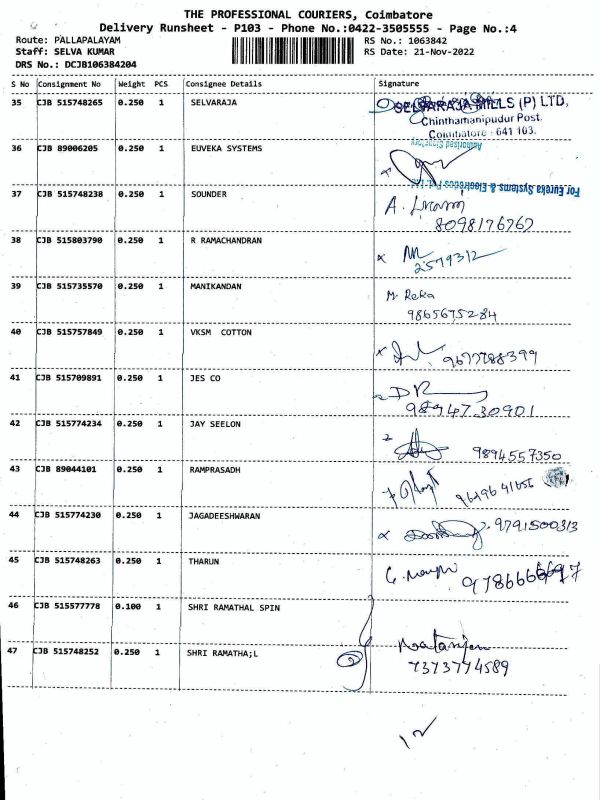 THE PROFESSIONAL COURIERS, Coimbatore
Delivery Runsheet - P103 - Phone No.:0422-3505555 - Page No.:4
Route: PALLAPALAYAM RS No.: 1063842
Staff: SELVA KUMAR RS Date: 21-Nov-2022
DRS No.: DCJB106384204
S No Consignment No Weight PCS Consignee Details Signature
35 CJB 515748265 0.250 1 SELVARAJA SELVARAJA MILLS (P) LTD,
Chinthamanipudur Post.
Coimbatore - 641 103.
36 CJB 89006205 0.250 1 EUVEKA SYSTEMS
Authorised Signatory
For Eureka Systems & Electronics Pvt. Ltd.
37 CJB 515748238 0.250 1 SOUNDER
8098176767
38 CJB 515803790 0.250 1 R RAMACHANDRAN
2579312
39 CJB 515735570 0.250 1 MANIKANDAN M. Reka
9865675284
40 CJB 515757849 0.250 1 VKSM COTTON 9677788399
41 CJB 515709891 0.250 1 JES CO
9894730901
42 CJB 515774234 0.250 1 JAY SEELON
9894557350
43 CJB 89044101 0.250 1 RAMPRASADH
44 CJB 515774230 0.250 1 JAGADEESHWARAN 9791500313
45 CJB 515748263 0.250 1 THARUN
46 CJB 515577778 0.100 1 SHRI RAMATHAL SPIN
47 CJB 515748252 0.250 1 SHRI RAMATHA;L
7373774589